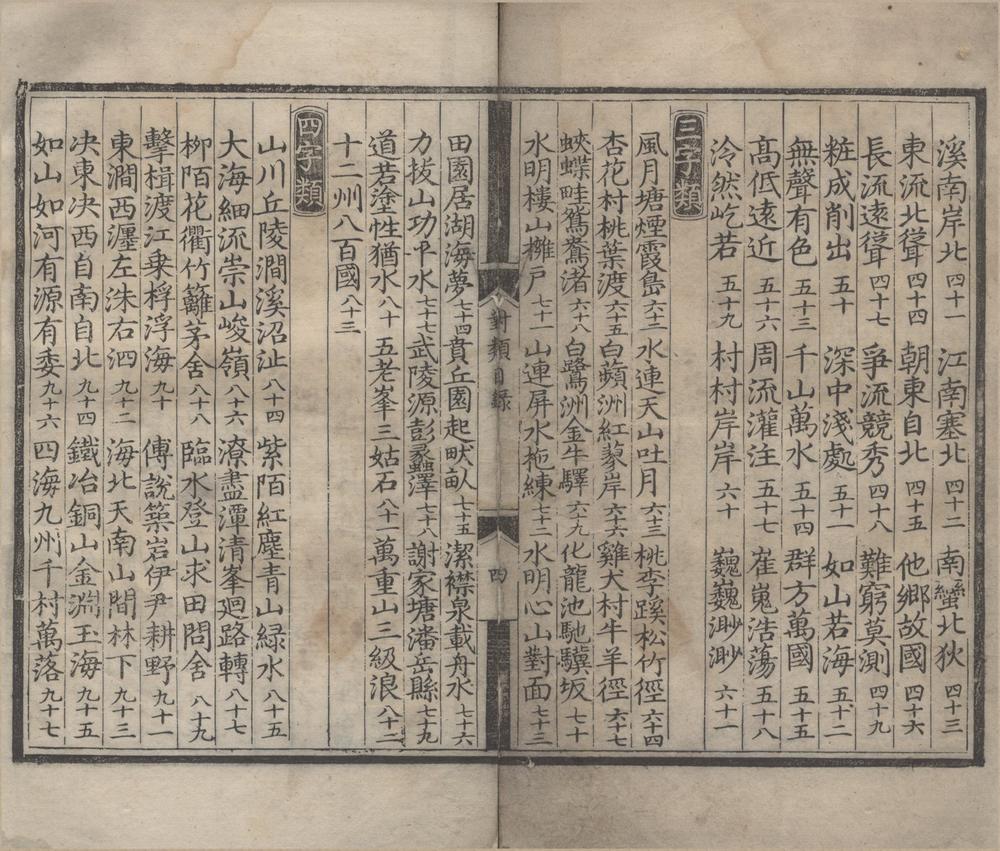 溪南岸北四十一江南塞北四十二南蠻北狄四十三
東流北聳四十四朝東自北四十五他鄉故國四十六
長流遠聳四十七爭流競秀四十八難窮莫測四十九
粧成削出五十深中淺處五十一如山若海五十二
無聲有色五十三千山萬水五十四群方萬國五十五
髙低遠近五十六周流灌注五十七崔嵬浩蕩五十八
泠然屹若五十九村村岸岸六十巍巍渺渺六十一
三字類
風月塘煙霞島六十二水連天山吐月六十三桃李蹊松竹徑六十四
杏花村桃葉渡六十五白蘋洲紅蓼岸六十六雞犬村牛羊徑六十七
蛺蝶畦鴛鴦渚六十八白鷺洲金牛驛六十九化龍池馳驥坂七十
水明樓山擁戶七十一山連屏水拖練七十二水明心山對面七十三
對類目錄
四
田園居湖海夢七十四賁丘園起畎畝七十五潔襟泉載舟水七十六
力拔山功平水七十七武陵源彭蠡澤七十八謝家塘潘岳縣七十九
道若塗性猶水八十五老峯三姑石八十一萬重山三級浪八十二
十二州八百國八十三
四字類
山川丘陵澗溪沼沚八十四紫陌紅塵青山緑水八十五
大海細流崇山峻嶺八十六潦盡潭清峯廻路轉八十七
柳陌花衢竹籬茅舍八十八臨水登山求田問舍八十九
擊楫渡江乗桴浮海九十傅說築岩伊尹耕野九十一
東澗西瀍左洙右泗九十二海北天南山間林下九十三
决東决西自南自北九十四鐵冶銅山金淵玉海九十五
如山如河有源有委九十六四海九州千村萬落九十七